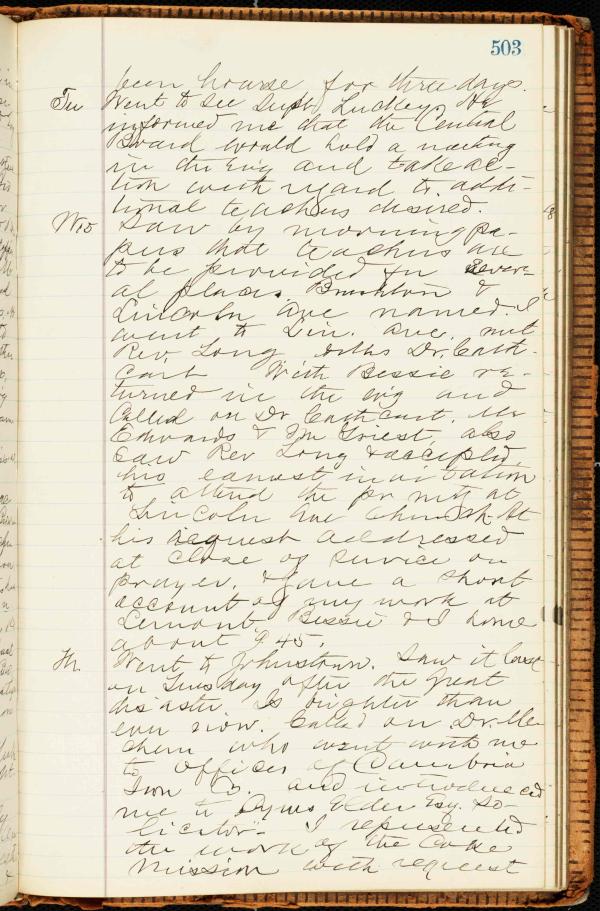 503
been hoarse for three days.
Tu Went to see Supt Luckey. He
informed me that the Central
Board would hold a meeting
in the evg and take ac-
tion with regard to addi-
tional teachers desired.
Wed Saw by morning pa-
pers that teachers are
to be provided for sever-
al places. Brushton &
Lincoln Ave named. I
went to Lin. Ave. met
Rev. Long, Dr. Cath-
cart With Bessie re-
turned in the evg and
Called on Dr Cathcart, Mr
Edwards & Griest, also
saw Rev Long & accepted
his earnest invitation
to attend the pr mtg at
Lincoln Ave Church. At
his request addressed
at close of service on
prayer, & gave a short
account of my work at
Lemont Bessie & I home
about 9 45.
Th. Went to Johnstown. Saw it last
on Tuesday after the great
disaster. Is brighter than
ever now. Called on Dr. Me-
chem who went with me
to offices of Cambria
Iron and introduced
me to Cyrus Elder Esq. So-
licitor. I represented
the work of the Coke
Mission with request